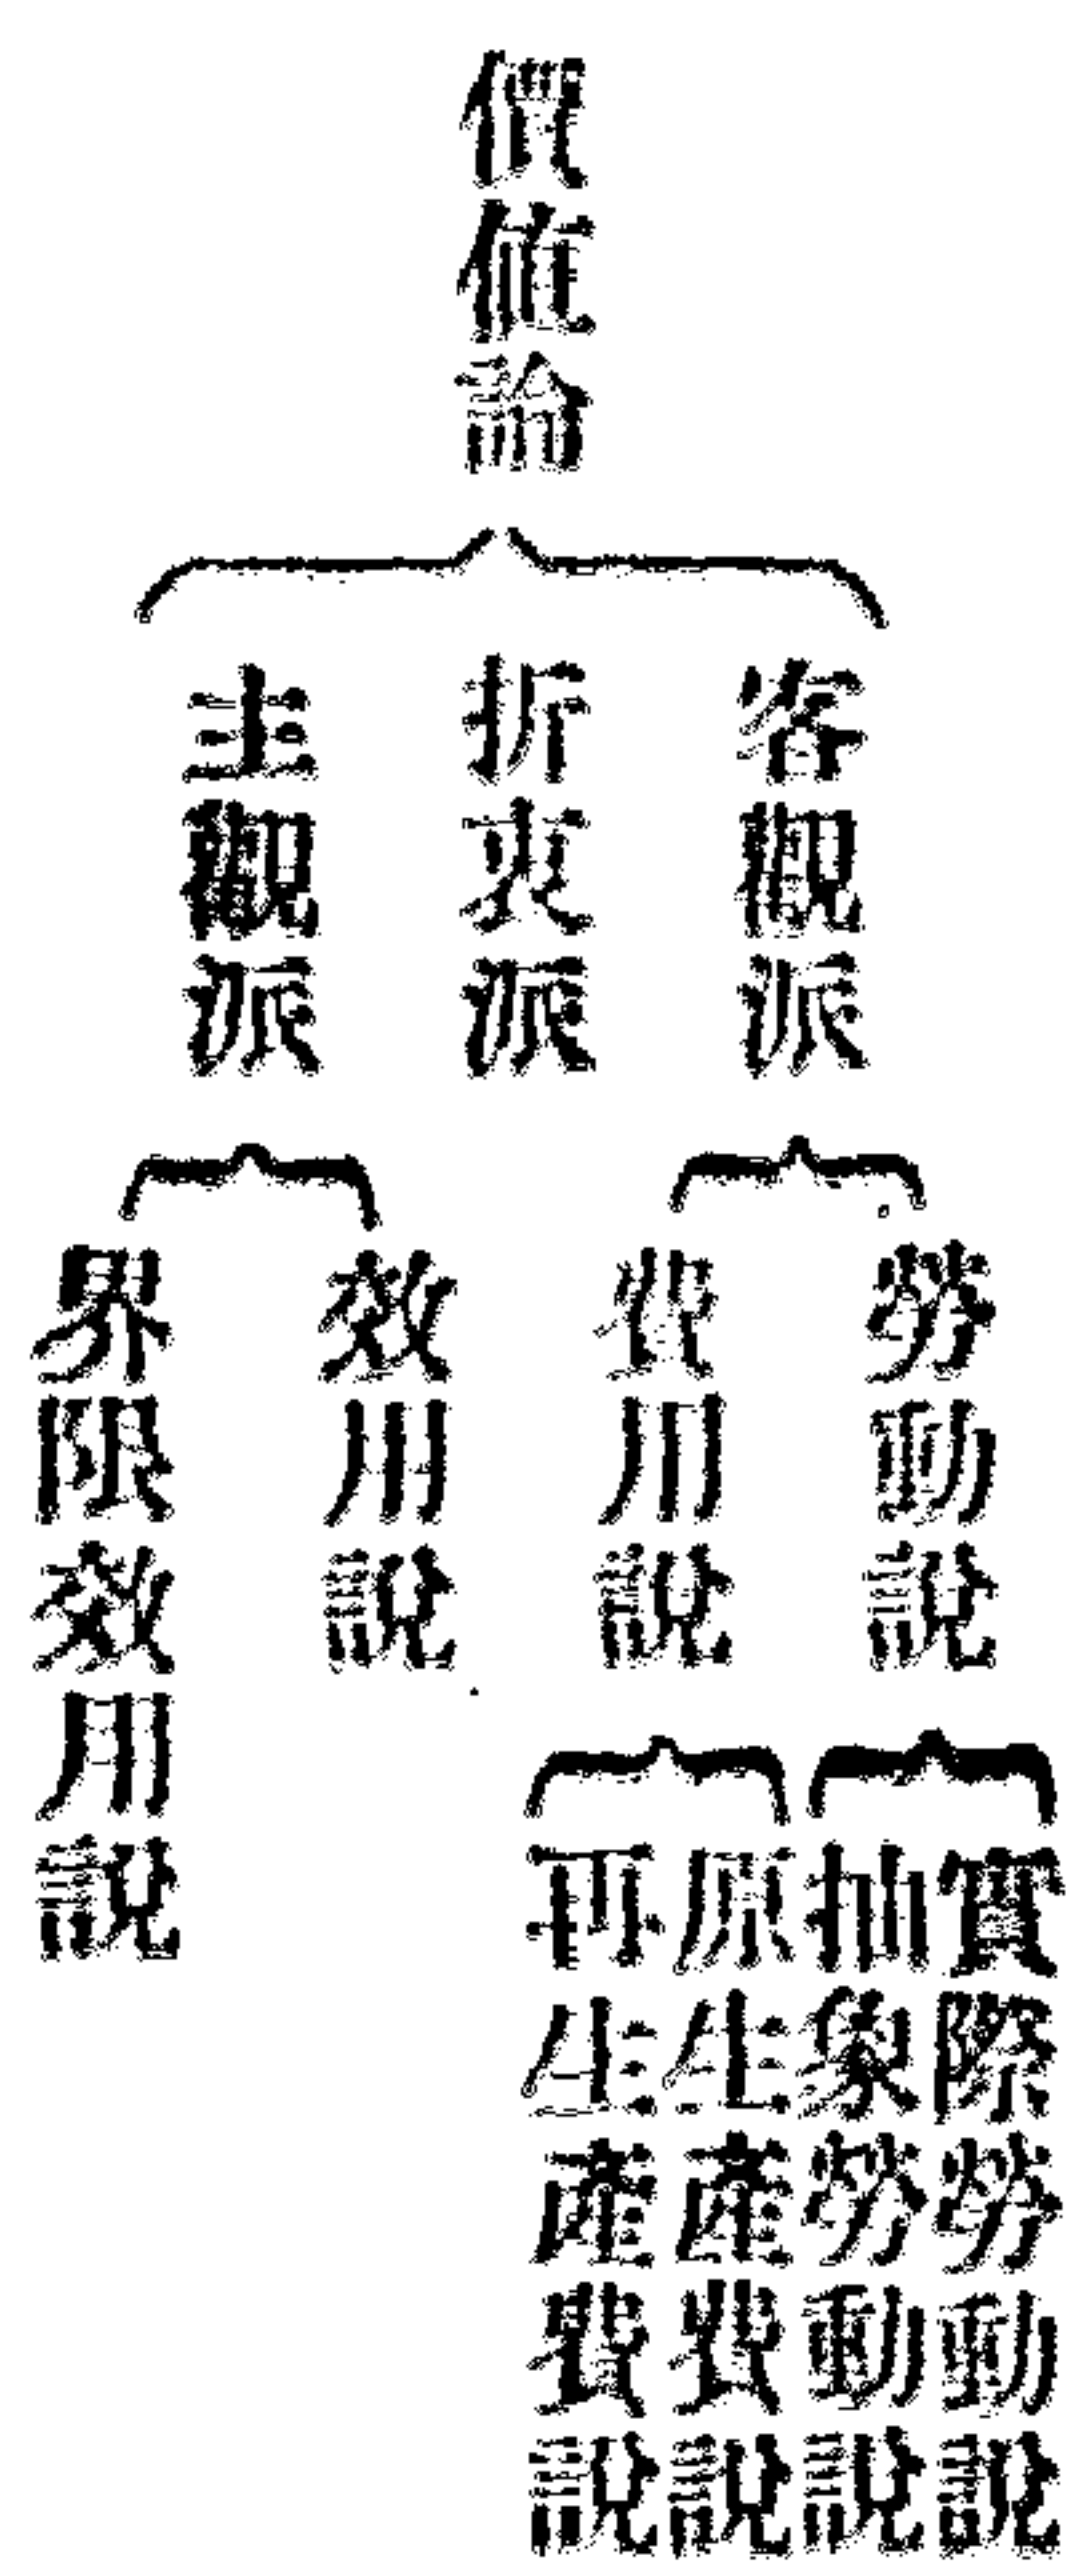 價値論
客觀派
折衷派
主觀派
勞動說
費用說
效用說
界限效用說
實際勞動說
抽象勞動說
原生產費說
再生產費說